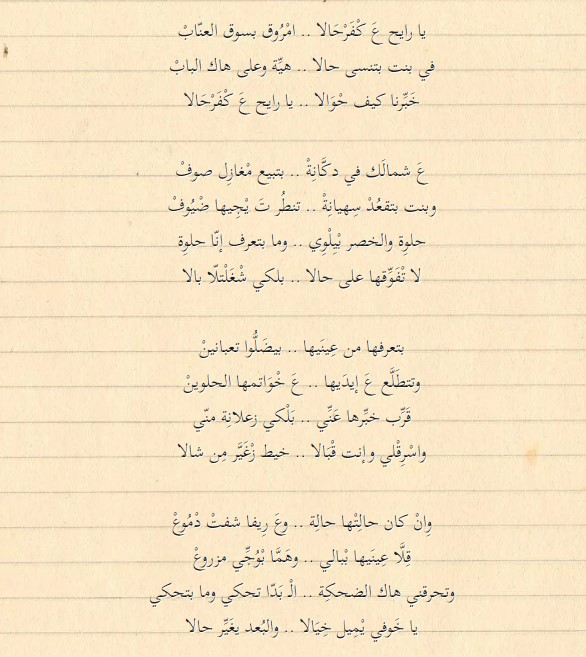 يا رايح عَ كْفَرْحَالا .. امْرُوق بسوق العنّابْ
في بنت بتنسى حالا .. هيِّة وعلى هاك البابْ
خَبِّرنا كيف حْوَالا .. يا رايح عَ كْفَرْحَالا
عَ شمالَك في دكَّانِةْ .. بتبيع مْغازِل صوفْ
وبنت بتقعُدْ سِهيانِةْ .. تنطُر تَ يْجِيها ضْيُوفْ
حلوِة والخصر بْيِلْوِي .. وما بتعرف إنّا حلوِة
لا تْفَوِّقها على حالا .. بلكي شْغَلْتلّا بالا
بتعرفها من عِينَيها .. بيضَلُّوا تعبانينْ
وتتطَلَّع عَ إيدَيها .. عَ خْوَاتمها الحلوينْ
قَرِّب خبِّرها عَنِّي .. بَلْكي زعلانِة منّي
واسْرِقْلي وإنت قْبَالا .. خيط زْغَيَّر مِن شالا
وِانْ كان حالِتْها حالِة .. وعَ رِيفا شفتْ دْمُوعْ
قِلَّا عِينَيها بْبالي .. وهَمَّا بْوُجِّي مزروعْ
وتحرقني هاك الضحكِة .. الْـ بَدّا تحكي وما بتحكي
يا خَوفي يْمِيل خِيَالا .. والبُعد يغَيِّر حالا